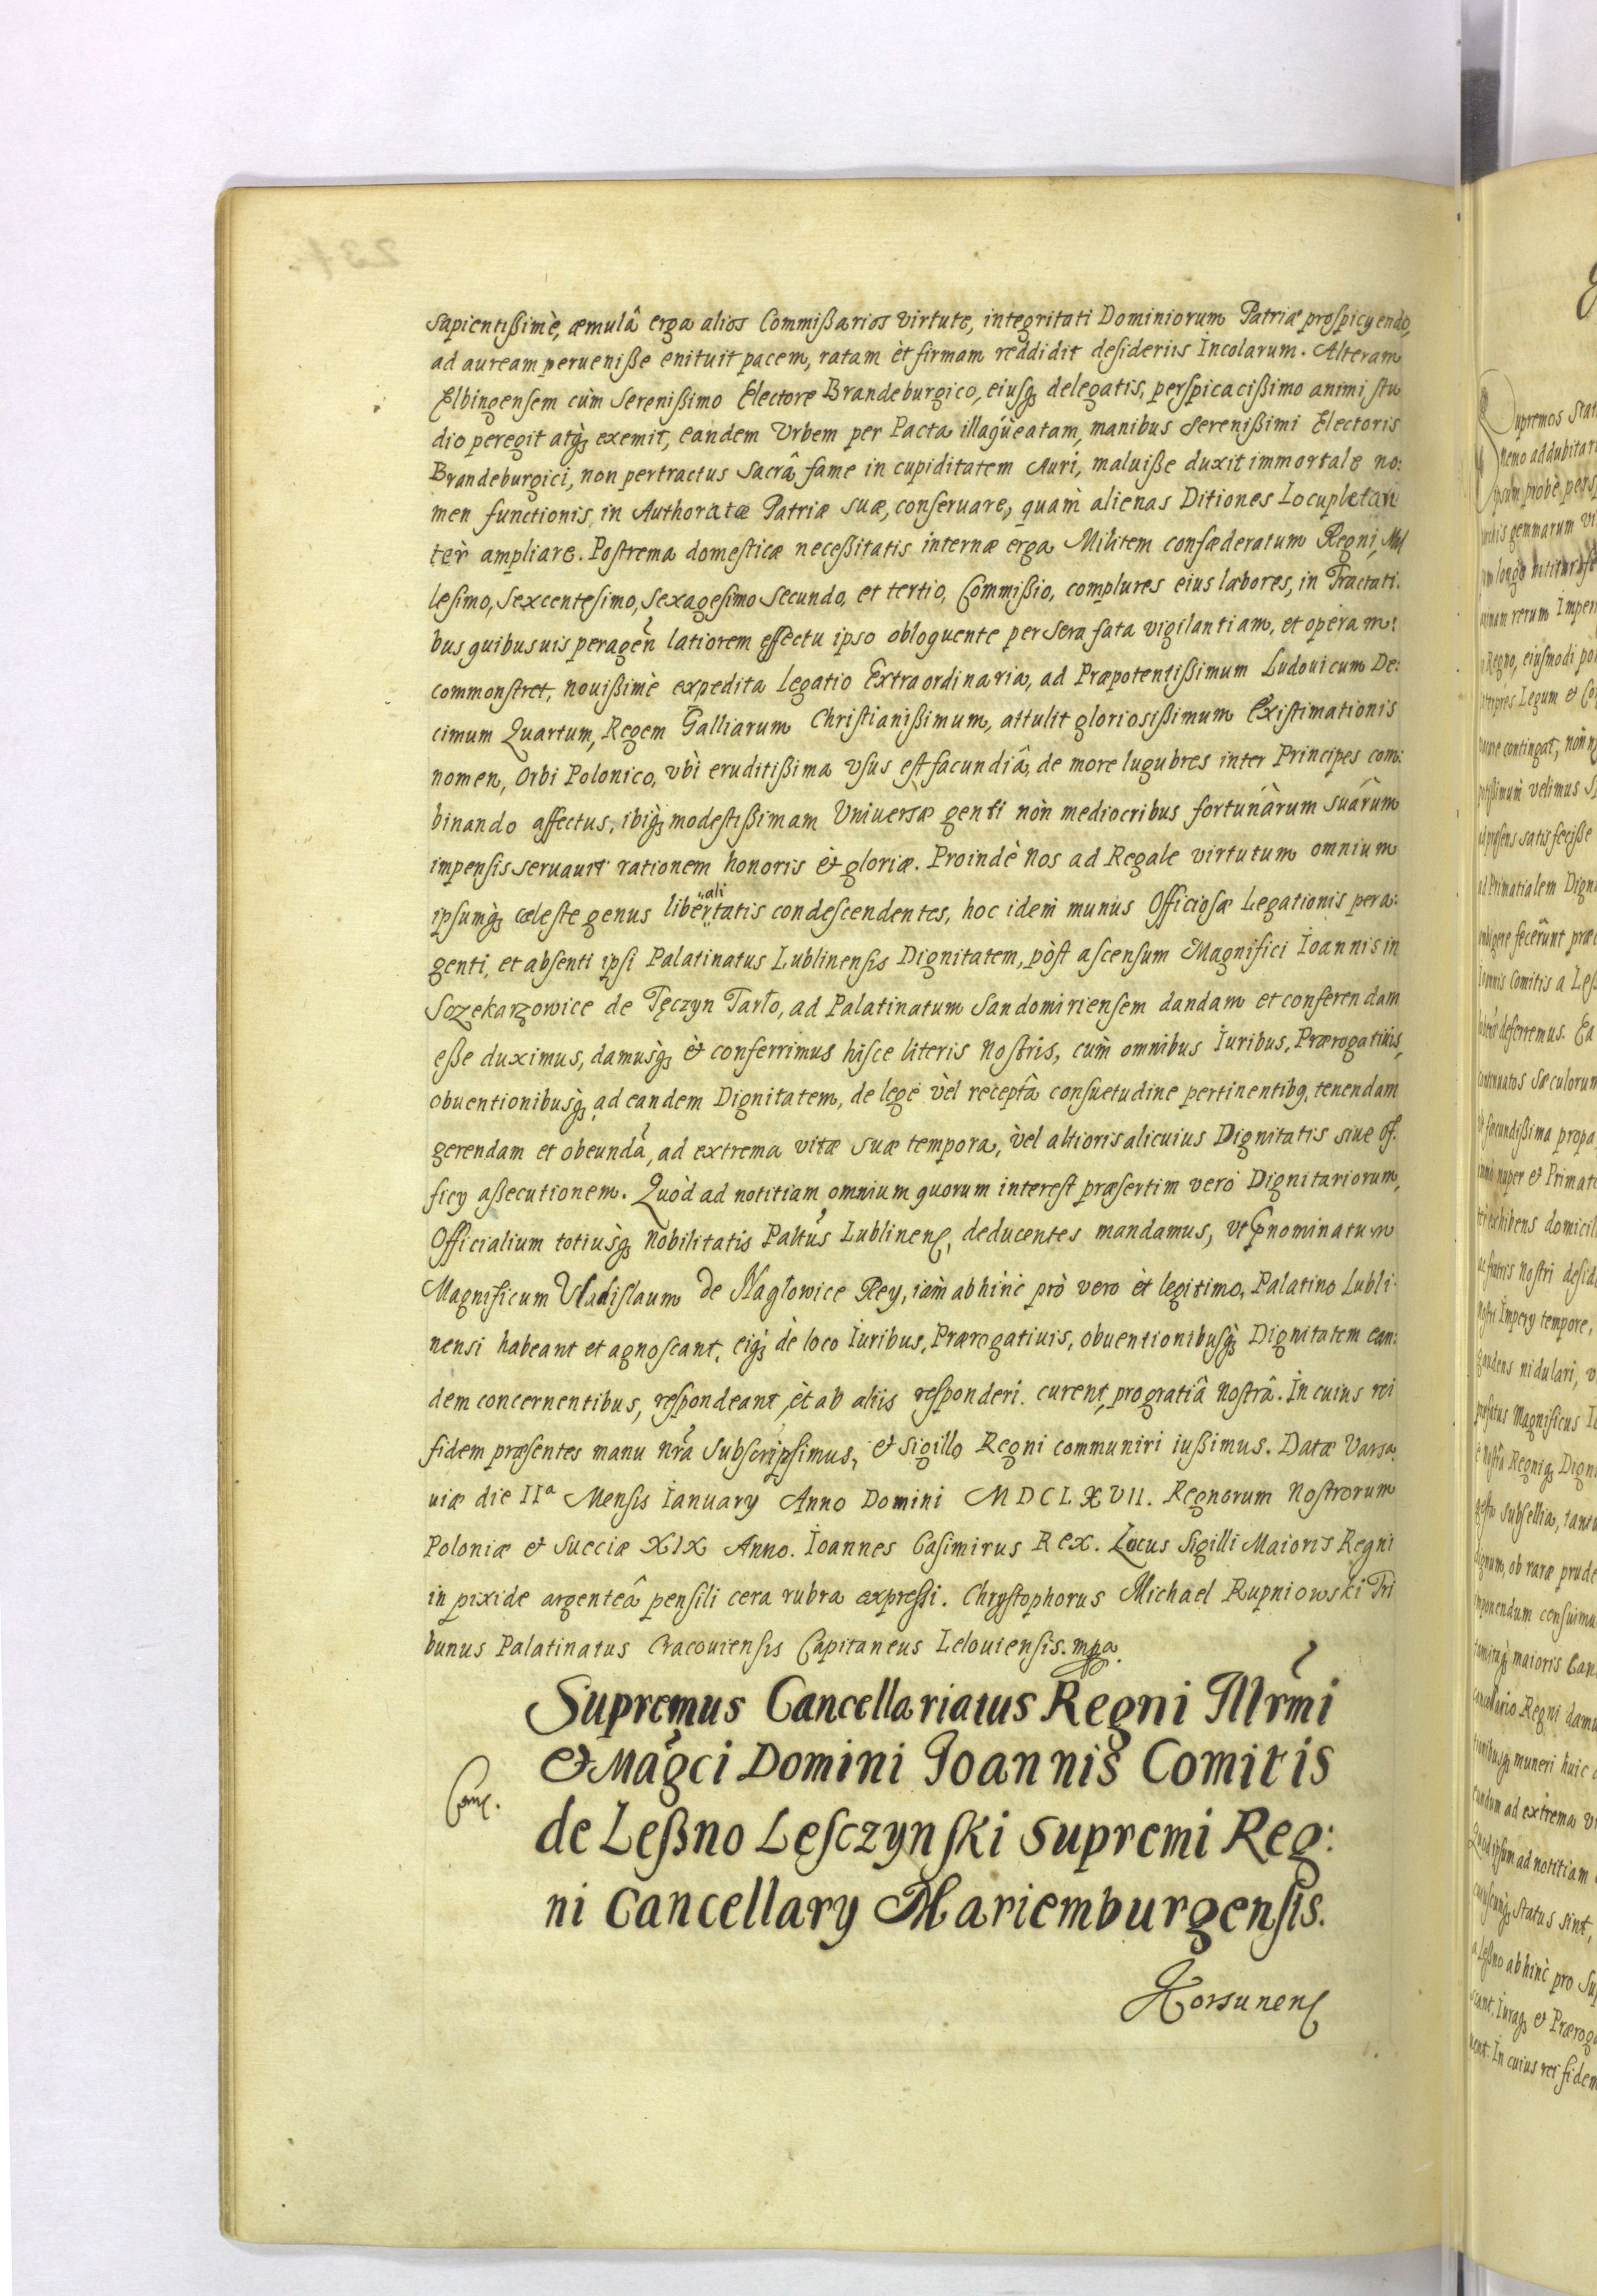 sapientißimè, æmulâ erga alios Commißarios virtute, integritati Dominiorum Patriæ prospicyendo,
ad auream perueniße enituit pacem, ratam èt firmam reddidit desideriis Incolarum. Alteram
Elbingensem cùm Serenißimo Electore Brandeburgico, eiusq; delegatis, perspicacißimo animi stu
dio peregit atq; exemit, eandem Vrbem per Pacta illagùeatam, manibus Serenißimi Electoris
Brandeburgici, non pertractus Sacrâ fame in cupiditatem Auri, maluiße duxit immortale no:
men functionis in Authoratæ Patriæ suæ, conseruare, quam̀ alienas Ditiones Locupletan
ter̀ ampliare. Postrema domesticæ neceßitatis internæ erga Militem confæderatum Regni, Mil
lesimo, Sexcentesimo, Sexagesimo Secundo, et tertio, Commißio, complures eius labores, in Tractati:
bus quibusuis peragen̄ latiorem effectu ipso obloquente per sera fata vigilantiam, et operam:
commonstret, nouißimè expedita Legatio Extraordinaria, ad Præpotentißimum Ludouicum De:
cimum Quartum, Regem Galliarum Christianißimum, attulit gloriosißimum Existimationis
nomen, Orbi Polonico, vbi eruditißima vsus est facundiâ, de more lugubres inter Principes com:
binando affectus, ibiq; modestißimam Vniuersæ genti non̄ mediocribus fortunàrum suârum
impensis seruauit rationem honoris èt gloriæ. Proindè nos ad Regale virtutum omnium
ali
ipsumq; cæleste genus libertatis condescendentes, hoc idem munus Officiosæ Legationis pera:
genti, et absenti ipsi Palatinatus Lublinensis Dignitatem, pòst ascensum Magnifici Ioannis in
Sczekarzowice de Tęczyn Tarło, ad Palatinatum Sandomiriensem dandam et conferendam
eße duximus, damusq; èt conferrimus hisce literis nostris, cum̀ omnibus Iuribus, Prærogatiuis,
obuentionibusq; ad eandem Dignitatem, de lege vèl receptâ consuetudine pertinentibq, tenendam
gerendam et obeundā, ad extrema vitæ suæ tempora, vèl altioris alicuius Dignitatis siue of.
ficy aßecutionem. Quòd ad notitiam omnium quorum interest præsertim vero Dignitariorum,
Officialium totiusq; Nobilitatis Paltus Lublinens, deducentes mandamus, vt pnominatum
Magnificum Vladislaum de Nagłowice Rey, iam̀ abhinc̀ prò vero èt legitimo, Palatino Lubli:
nensi habeant et agnoscant, eiq; dè loco Iuribus, Prærogatiuis, obuentionibusq; Dignitatem ean:
dem concernentibus, respondeant, èt ab aliis responderi. curent, pro gratiâ nostrâ. In cuius rei
fidem præsentes manu nrā Subscripsimus, et sigillo Regni communiri iußimus. Datæ Varsa:
uiæ die IIa Mensis Ianuary Anno Domini MDCLXVII. Regnorum Nostrorum
Poloniæ et Sueciæ XIX Anno. Ioannes Casimirus Rex. Locus Sigilli Maioris Regni
in pixide argenteâ pensili cera rubra expressi. Chrystophorus Michael Rupniowski Tri
bunus Palatinatus Cracouiensis Capitaneus Lelouiensis. mpa.
Supremus Cancellariatus Regni Illrmi
et Magci Domini Ioannis Comitis
Canc.
de Leßno Lesczynski Supremi Reg:
ni Cancellary Mariemburgensis.
Korsunens